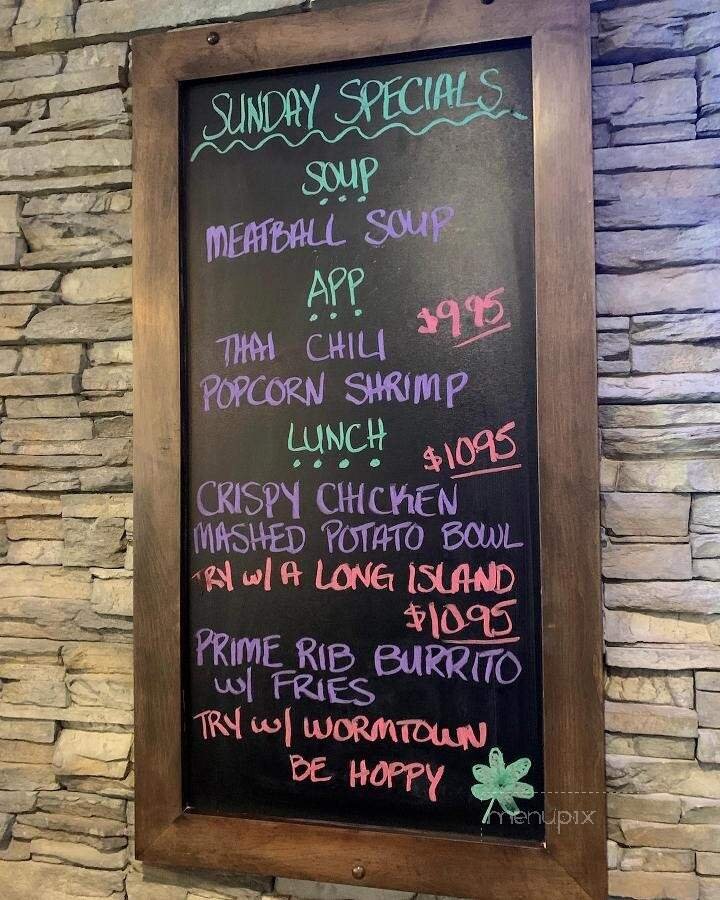 SUNDAY SPECIALS
SOUP
MEATBALL SOUP
APP
$995
THAI CHILI
POPCORN SHRIMP
LUNCH
$1095
CRISPY CHICKEN
MASHED POTATO BOWL
TRY w/ A LONG ISLAND
$1095
PRIME RIB BURRITO
w/ FRIES
TRY w/ WORMTOWN
BE HOPPY
menupix